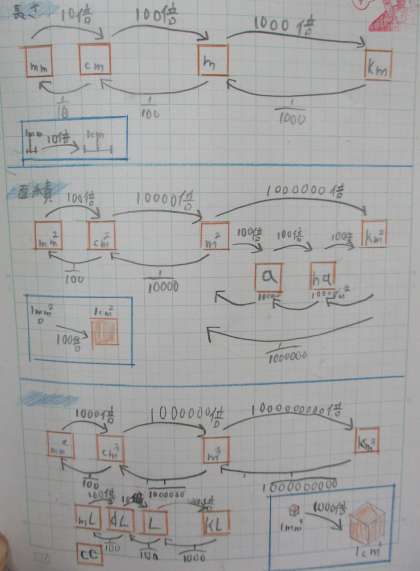 長さ
10倍 100倍 1000倍
mm cm m km
1/10 1/100 1/1000
1mm 10倍 1cm
面積
100倍 10000倍 1000000倍
mm² cm² m² km²
100倍 100倍 100倍
1/100 1/10000
a ha
100m² 10000m²
1mm² 1cm²
100倍
1/1000000
1000倍 1000000倍 1000000000倍
cm³ m³ km³
1/100 1/1000000 1/1000000000
mL dL L kL
1/100 1/1000
cc
1000倍
1mm³
1cm³